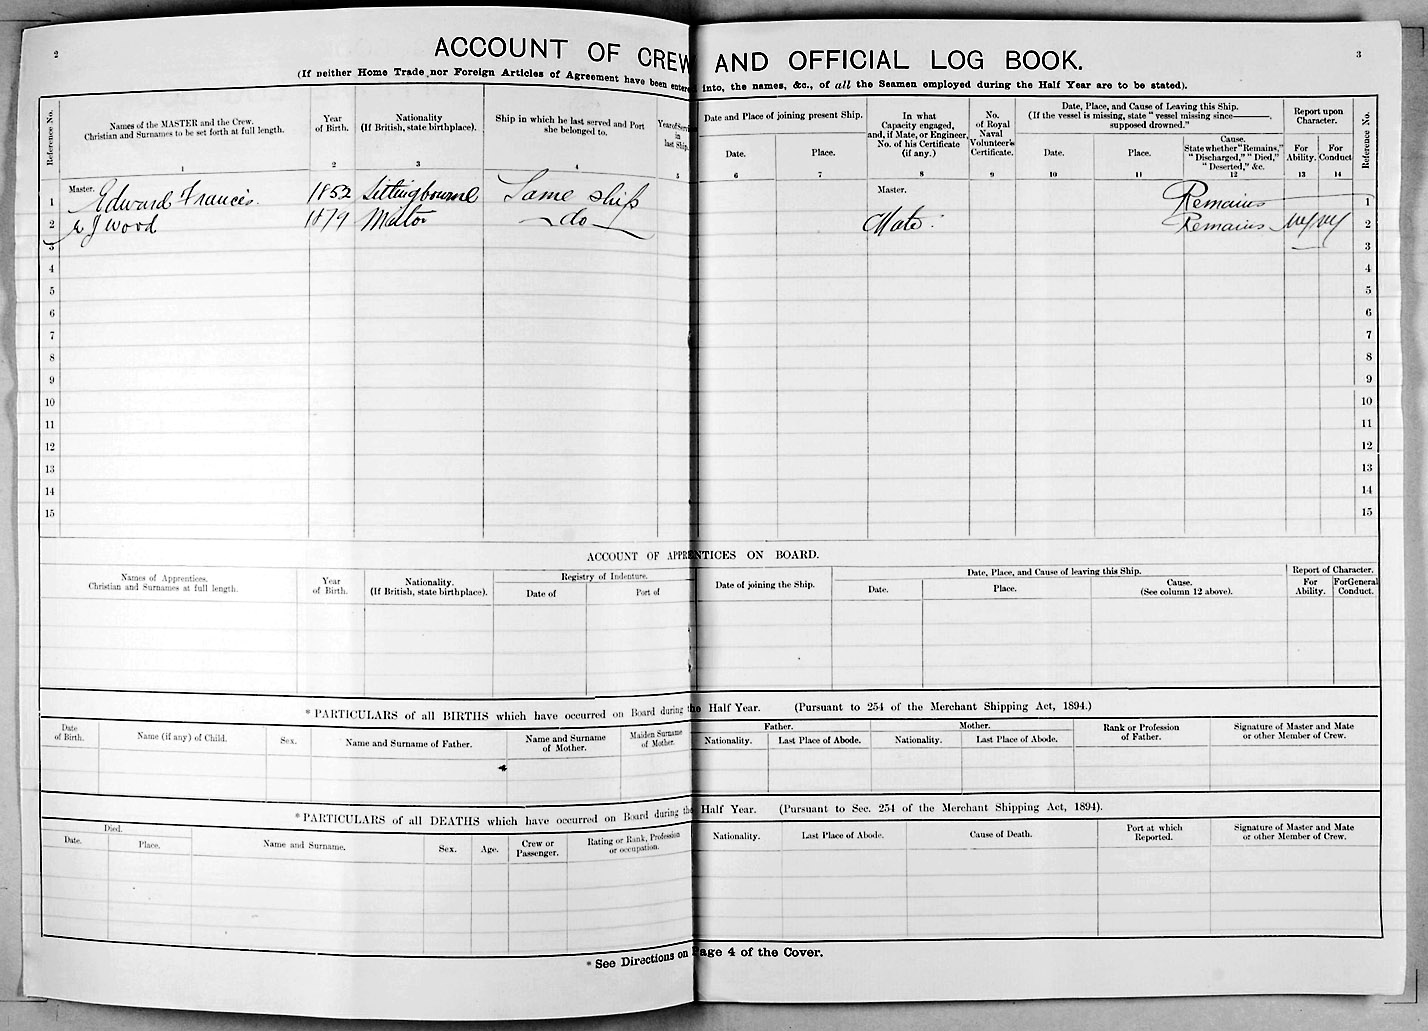 2
3
ACCOUNT OF CREW AND OFFICIAL LOG BOOK.
(If neither Home Trade nor Foreign Articles of Agreement have been entered into, the names, &c., of all the Seamen employed during the Half Year are to be stated).
Reference No.
Names of the MASTER and the Crew.
Christian and Surnames to be set forth at full length.
1
Year
of Birth.
2
Nationality
(If British, state birthplace).
3
Ship in which he last served and Port
she belonged to.
4
Year of Servi
in
last Ship.
5
Date and Place of joining present Ship.
Date.
6
Place.
7
In what
Capacity engaged,
and, if Mate, or Engineer,
No. of his Certificate
(if any.)
8
No.
of Royal
Naval
Volunteer's
Certificate.
9
Date, Place, and Cause of Leaving this Ship.
(If the vessel is missing, state "vessel missing since———,
supposed drowned."
Date.
10
Place.
11
Cause.
State whether "Remains,"
"Discharged," "Died,"
"Deserted," &c.
12
Report upon
Character.
For
Ability.
13
For
Conduct
14
Reference No.
1 Master. Edward Francis. 1852 Sittingbourne Same ship Master. Remains 1
2 Wood 1879 Milton do Mate. Remains 2
3 3
4 4
5 5
6 6
7 7
8 8
9 9
10 10
11 11
12 12
13 13
14 14
15 15
ACCOUNT OF APPRENTICES ON BOARD.
Names of Apprentices.
Christian and Surnames at full length.
Year
of Birth.
Nationality.
(If British, state birthplace).
Registry of Indenture.
Date of
Port of
Date of joining the Ship.
Date, Place, and Cause of leaving this Ship.
Date.
Place.
Cause.
(See column 12 above).
Report of Character.
For
Ability.
For General
Conduct.
* PARTICULARS of all BIRTHS which have occurred on Board during the Half Year. (Pursuant to 254 of the Merchant Shipping Act, 1894.)
Date
of Birth.
Name (if any) of Child.
Sex.
Name and Surname of Father.
Name and Surname
of Mother.
Maiden Surname
of Mother.
Father.
Nationality.
Last Place of Abode.
Mother.
Nationality.
Last Place of Abode.
Rank or Profession
of Father.
Signature of Master and Mate
or other Member of Crew.
* PARTICULARS of all DEATHS which have occurred on Board during the Half Year. (Pursuant to Sec. 254 of the Merchant Shipping Act, 1894).
Died.
Date.
Place.
Name and Surname.
Sex.
Age.
Crew or
Passenger.
Rating or Rank, Profession
or occupation.
Nationality.
Last Place of Abode.
Cause of Death.
Port at which
Reported.
Signature of Master and Mate
or other Member of Crew.
* See Directions on Page 4 of the Cover.